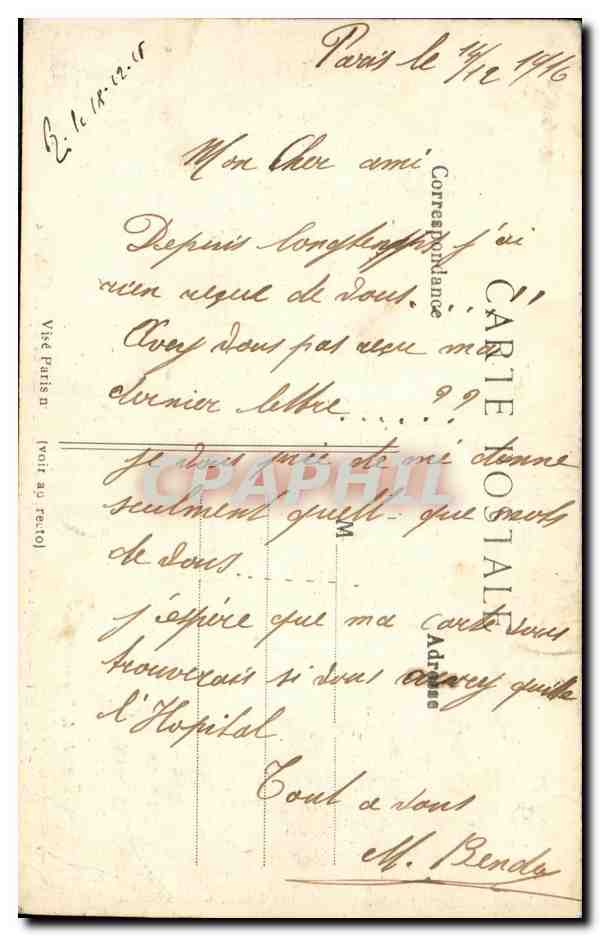 Paris le 14/12 1916
R. le 18-12-16
Mon Cher ami
Depuis longtemps j'ai
rien reçue de Vous....!!
Avez Vous pas reçu ma
dernier lettre......??
je Vous prie de me donne
seulment quell-que mots
de Vous
j'éspére que ma carte Vous
trouverais si Vous avez quitte
l'Hopital
Tout a Vous
M. Benda
CARTE POSTALE
Correspondance
Adresse
M
Visé Paris n
(voir au recto)
CPAPHIL